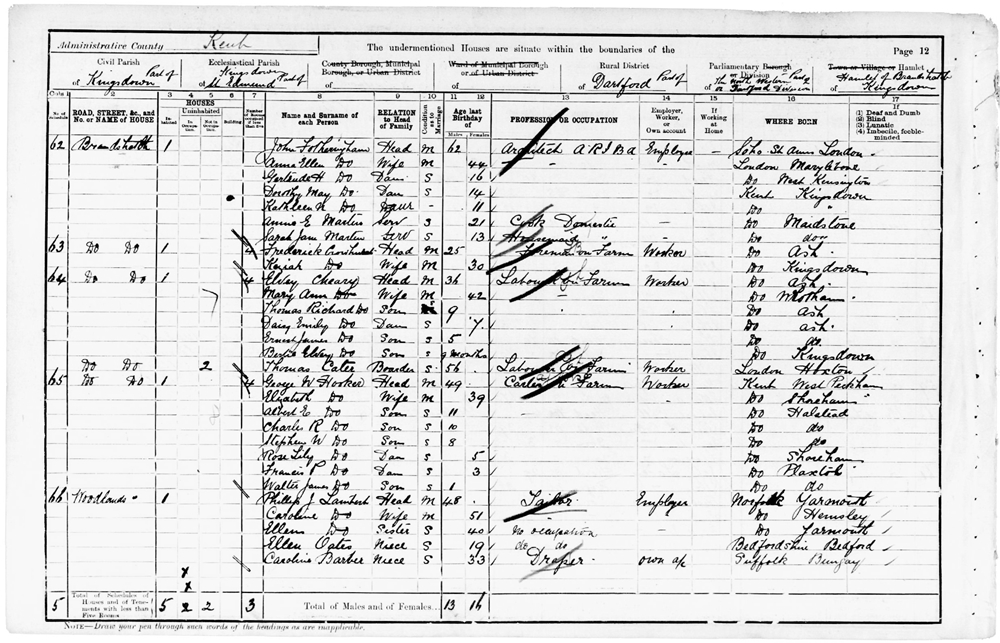 Administrative County Kent The undermentioned Houses are situate within the boundaries of the Page 12
Civil Parish Ecclesiastical Parish County Borough, Municipal Borough, or Urban District Ward of Municipal Borough or of Urban District Rural District Parliamentary Borough or Division Town or Village or Hamlet
of Kingsdown Part of of Kingsdown St Edmund Part of of of Dartford Part of of Hamlet of Kingsdown
Cols. 1 2 3 4 5 6 7 8 9 10 11 12 13 14 15 16 17
No. of Schedule ROAD, STREET, &c., and No. or NAME of HOUSE HOUSES Inhabited Uninhabited In Occupation Not in Occupation Building Name and Surname of each Person RELATION to Head of Family Condition as to Marriage Age last Birthday of Males Females PROFESSION OR OCCUPATION Employer, Worker, or Own account If Working at Home WHERE BORN (1) Deaf and Dumb (2) Blind (3) Lunatic (4) Imbecile, feeble-minded
62 1 John Fotheringham Head M 62 Architect A R I B A Employer – Soho St Anns London
Anna Ellen Do Wife M 44 London Marylebone
Gertrude H Do Daur S 16 Do West Kensington
Dorothy May Do Daur S 14 Kent Kingsdown
Kathleen N Do Daur - 11 Do "
Annie E Martin Serv S 21 Cook Domestic Do Maidstone
Sarah Jane Martin Serv S 13 Housemaid " Do do
63 Do Do 1 4 Frederick Head M 25 Foreman on Farm Worker Do Ash
Do Wife M 30 Do Kingsdown
64 Do Do 1 4 Elvey Cheary Head M 36 Labourer on Farm Worker Do Ash
Mary Ann Do Wife M 42 – Do Wrotham
Thomas Richard Do Son 9 Do Ash
Daisy Emily Do Daur S 7 Do ash
Ernest James Do Son S 5 Do do
Bertie Elvey Do Son S 9 months Do Kingsdown
Do Do 2 Thomas Boarder S 56 Labourer on Farm Worker London Hoxton
65 Do Do 1 4 George W Hooker Head M 49 Carter on Farm Worker Kent West Peckham
Elizabeth Do Wife M 39 Do Shoreham
Albert E Do Son S 11 Do Halstead
Charles R Do Son S 10 Do do
Stephen W Do Son S 8 Do do
Rose Lily Do Daur S 5 Do Shoreham
Francis P Do Daur S 3 Do Plaxtol
Walter James Do Son S 1 Do do
66 Woodlands 1 Phillip J Lambert Head M 48 Tailor Employer Norfolk Yarmouth
Caroline Do Wife M 51 – Do Hemsley
Ellen Do Sister S 40 No occupation Do Yarmouth
Ellen Oates Niece S 19 do do Bedfordshire Bedford
Caroline Barber Niece S 33 Draper own a/c Suffolk Bungay
5 Total of Schedules of Houses and of Tenements with less than Five Rooms 5 2 2 3 Total of Males and of Females... 13 16
NOTE—Draw your pen through such words of the headings as are inapplicable.